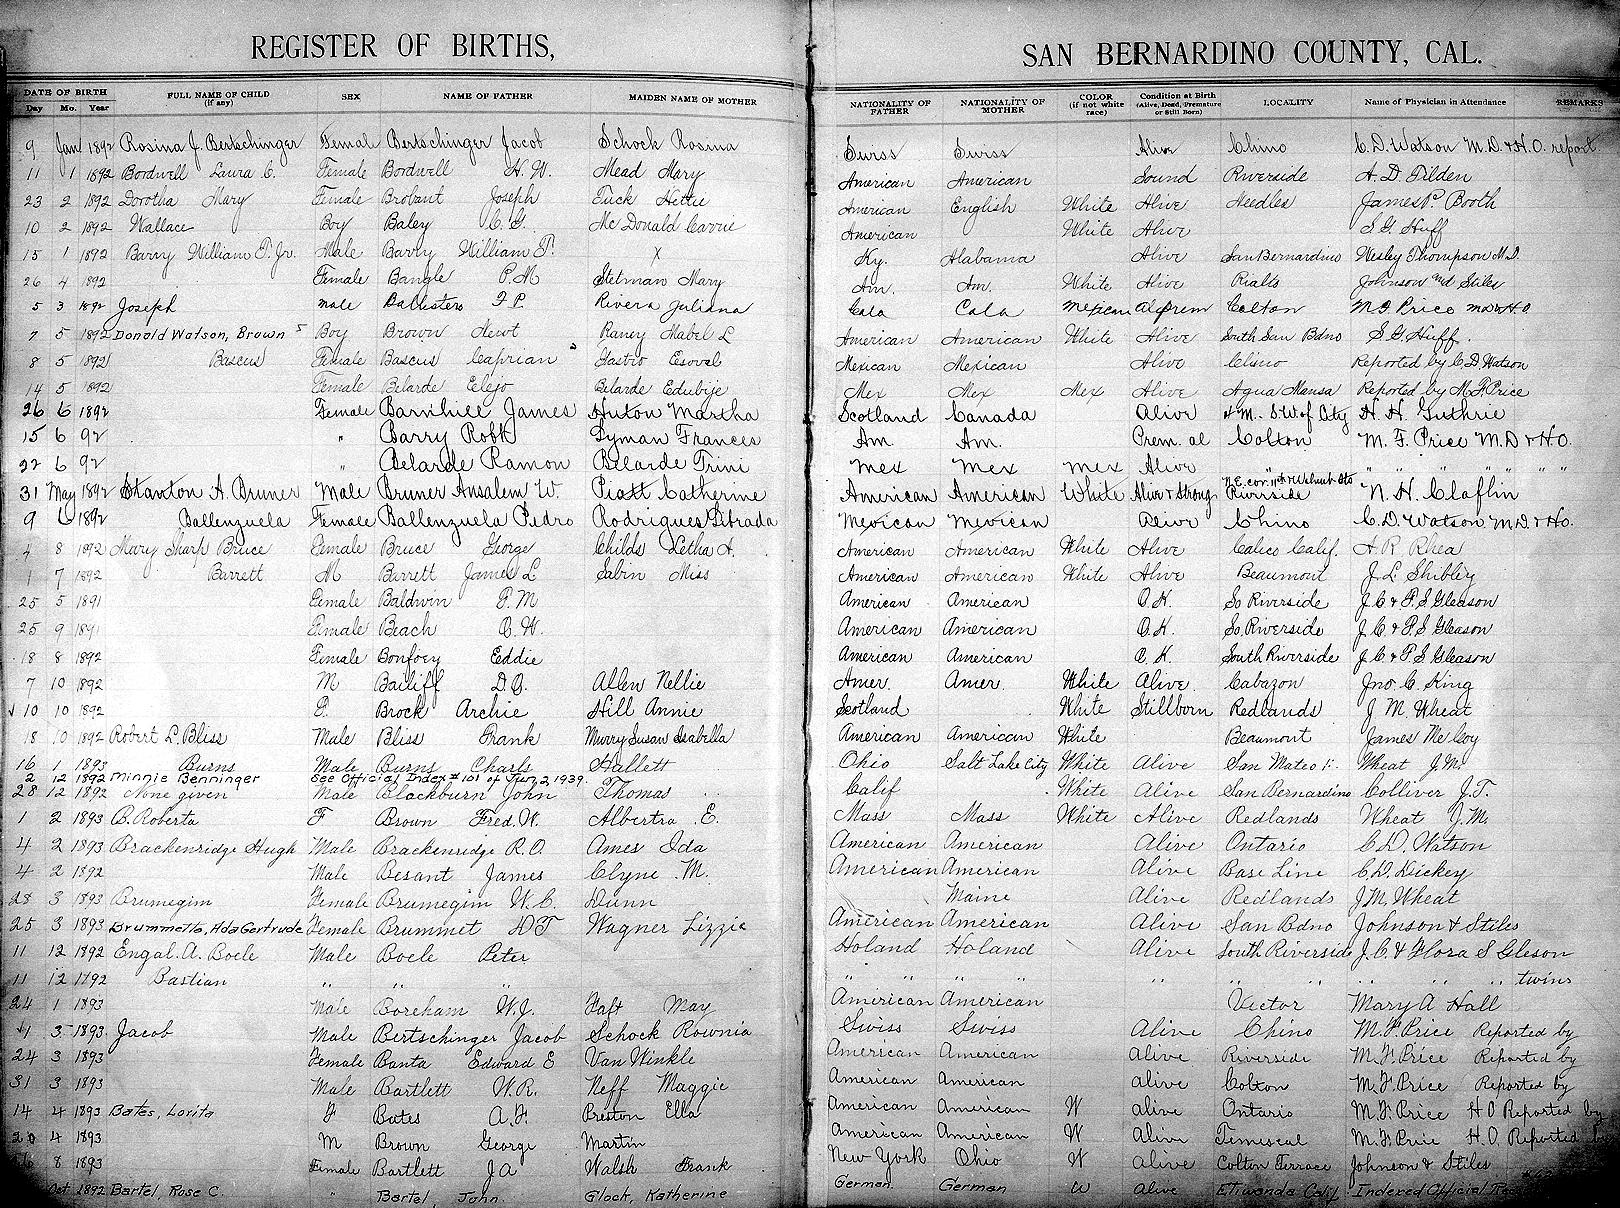 REGISTER OF BIRTHS, SAN BERNARDINO COUNTY, CAL.
DATE OF BIRTH Day Mo. Year FULL NAME OF CHILD (if any) SEX NAME OF FATHER MAIDEN NAME OF MOTHER NATIONALITY OF FATHER NATIONALITY OF MOTHER COLOR (if not white race) Condition at Birth (Alive, Dead, Premature or Still Born) LOCALITY Name of Physician in Attendance REMARKS
9 Jan 1892 Rosina J. Bertschinger Female Bertschinger Jacob Schock Rosina Swiss Swiss Alive Chino C. D. Watson M.D. & H.O. report
11 1 1892 Bordwell Laura C. Female Bordwell H. W. Mead Mary American American Sound Riverside A. D. Tilden
23 2 1892 Dorotha Mary Female Brobant Joseph Tuck Hettie American English White Alive Needles James P. Booth
10 2 1892 Wallace Boy Baley C. G. McDonald Carrie American White Alive S. G. Huff
15 1 1892 Barry William T. Jr. Male Barry William T. x Ky. Alabama Alive San Bernardino Wesley Thompson M.D.
26 4 1892 Female Bangle P. M Stetman Mary Am. Am. White Alive Rialto Johnson and Stiles
5 3 1892 Joseph male Ballistero F. P. Rivera Juliana Cala Cala Mexican Al Prem Colton M. F. Price MD & HO
7 5 1892 Donald Watson, Brown Boy Brown Newt Raney Mabel L American American White Alive South San Bdno S. G. Huff.
8 5 1892 Bascus Female Bascus Caprian Gastro Esoval Mexican Mexican Alive Chino Reported by C. D. Watson
14 5 1892 Female Belarde Elejo Belarde Edubije Mex Mex Mex Alive Agua Mansa Reported by M. F. Price
26 6 1892 Female Barnhill James Huton Martha Scotland Canada Alive 4 M. S.W. of City H. H. Guthrie
15 6 92 " Barry Robt Lyman Frances Am. Am. Prem. al Colton M. F. Price M.D & H.O.
22 6 92 " Belarde Ramon Belarde Trini Mex Mex Mex Alive " " " " " " "
31 May 1892 Stanton A. Bruner Male Bruner Ansalem W. Piatt Catherine American American White Alive & Strong N.E. cor. 11th & Walnut Sts Riverside N. H. Claflin
9 6 1892 Ballenzuela Female Ballenzuela Pedro Rodrigues Librada Mexican Mexican Alive Chino C. D. Watson M.D. & H.O.
4 8 1892 Mary Sharp Bruce Female Bruce George Childs Letha A. American American White Alive Calico Calif. A R Rhea
1 7 1892 Barrett M Barrett James L Sabin Miss American American White Alive Beaumont J. L. Shibley
25 5 1891 Female Baldwin P. M American American O.K. So Riverside J. C & P. S Gleason
25 9 1891 Female Beach C. W. American American O.K. So. Riverside J. C. & P. S Gleason
18 8 1892 Female Bonfoey Eddie American American O.K. South Riverside J. C & P. S Gleason
7 10 1892 M Bailiff D. C. Allen Nellie Amer. Amer. White Alive. Cabazon Jno. C. King
10 10 1892 Brock Archie Hill Annie Scotland White Stillborn Redlands J. M. Wheat
18 10 1892 Robert L. Bliss Male Bliss Frank Murry Susan Isabella American American White Beaumont James McCoy
16 1 1893 Burns Male Burns Charls Hallett Ohio Salt Lake City White Alive San Mateo Wheat J. M.
2 12 1892 Minnie Benninger See Official Index #101 of Jun 2, 1939.
28 12 1892 None given Male Blackburn John Thomas Calif White Alive San Bernardino Colliver J. T.
1 2 1893 B. Roberta F Brown Fred. W. Albertra E. Mass Mass White Alive Redlands Wheat J. M.
4 2 1893 Brackenridge Hugh Male Brackenridge R. O. Ames Ida American American Alive Ontario C. D. Watson
4 2 1892 Male Besant James Clyne M. American American Alive Base Line C. D. Dickey
28 3 1893 Brumegim Female Brumegim W. C. Dunn Maine Alive Redlands J. M. Wheat
25 3 1893 Brummette, Ada Gertrude Female Brummet D T Wagner Lizzie American American Alive San Bdno Johnson & Stiles
11 12 1892 Engal. A. Boele Male Boele Peter Holand Holand Alive South Riverside J. C. & Flora S Gleson
11 12 1892 Bastian " " " " " " " " " " " twins
24 1 1893 Male Boreham W. J. Taft May American American Victor Mary A Hall
1 3 1893 Jacob Male Bertschinger Jacob Schock Rownia Swiss Swiss Alive Chino M. F. Price Reported by
24 3 1893 Female Banta Edward E Van Winkle American American Alive Riverside M. F. Price Reported by
31 3 1893 Male Bartlett W. R. Neff Maggie American American Alive Colton M. F. Price Reported by
14 4 1893 Bates, Lorita F Bates A. F. Preston Ella American American W alive Ontario M. F. Price H O Reported by
20 4 1893 M Brown George Martin American American W Alive Temescal M. F. Price H. O. Reported
8 1893 Female Bartlett J A Walsh Frank New York Ohio W Alive Colton Terrace Johnson & Stiles
Oct 1892 Bartel, Rose C. " Bartel, John Glock, Katherine German German W Alive Etiwanda Calif Indexed Official